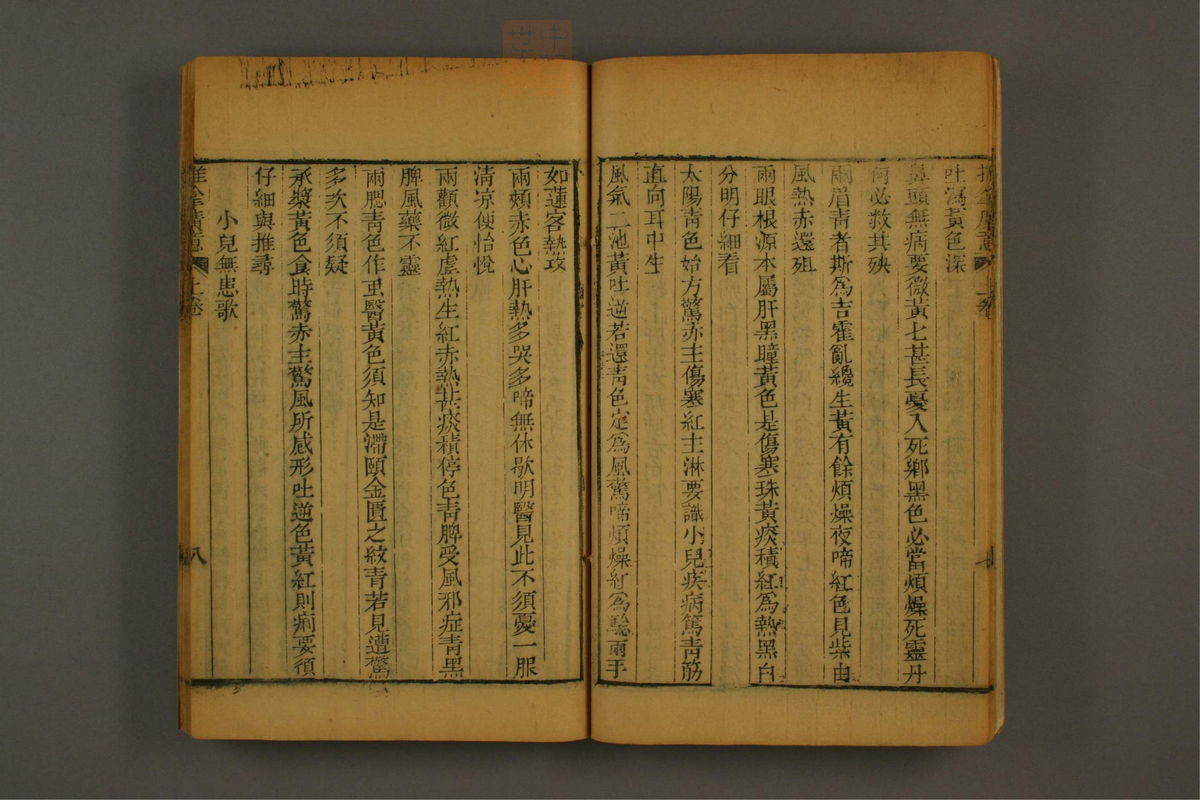 吐瀉黃色深
鼻頭無病要微黃七甚長憂入死鄉黑色必當煩燥死靈丹
何必救其殃
兩眉青者斯為吉霍亂纔生黃有餘煩燥夜啼紅色見柴由
風熱赤還殂
兩眼根源本屬肝黑瞳黃色是傷寒珠黃痰積紅為熱黑白
分明仔細看
太陽青色始方驚赤主傷寒紅主淋要識小兒疾病篤青筋
直向耳中生
風氣二池黃吐逆若還青色定為風驚啼煩燥紅為驗兩手
如蓮客執攻
兩頰赤色心肝熱多哭多啼無休歇明醫見此不須憂一服
清凉便怡悅
兩顴微紅虛熱生紅赤熱甚痰積停色青脾受風邪症青黑
脾風藥不靈
兩腮青色作䖝醫黃色須知是滯頤金匱之紋青若見遭驚
多次不須疑
承漿黃色食時驚赤主驚風所感形吐逆色黃紅則痢要須
仔細與推尋
小兒無患歌
上卷
八